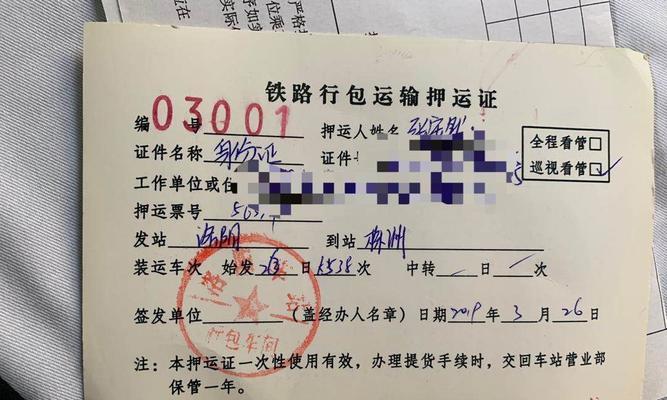 铁路行包运输押运证
编 号 03001 押运人姓名
证件名称 身份证 证件
全程看管□
巡视看管□
工作单位或住
押运票号
发站 洛阳 到站 株洲
装运车次 始发 26 日 K538 次 中转 日 次
签发单位 (盖经办人名章) 日期 2019 年 3 月 26 日
行包车间
注：本押运证一次性使用有效，办理提货手续时，交回车站营业部
保管一年。